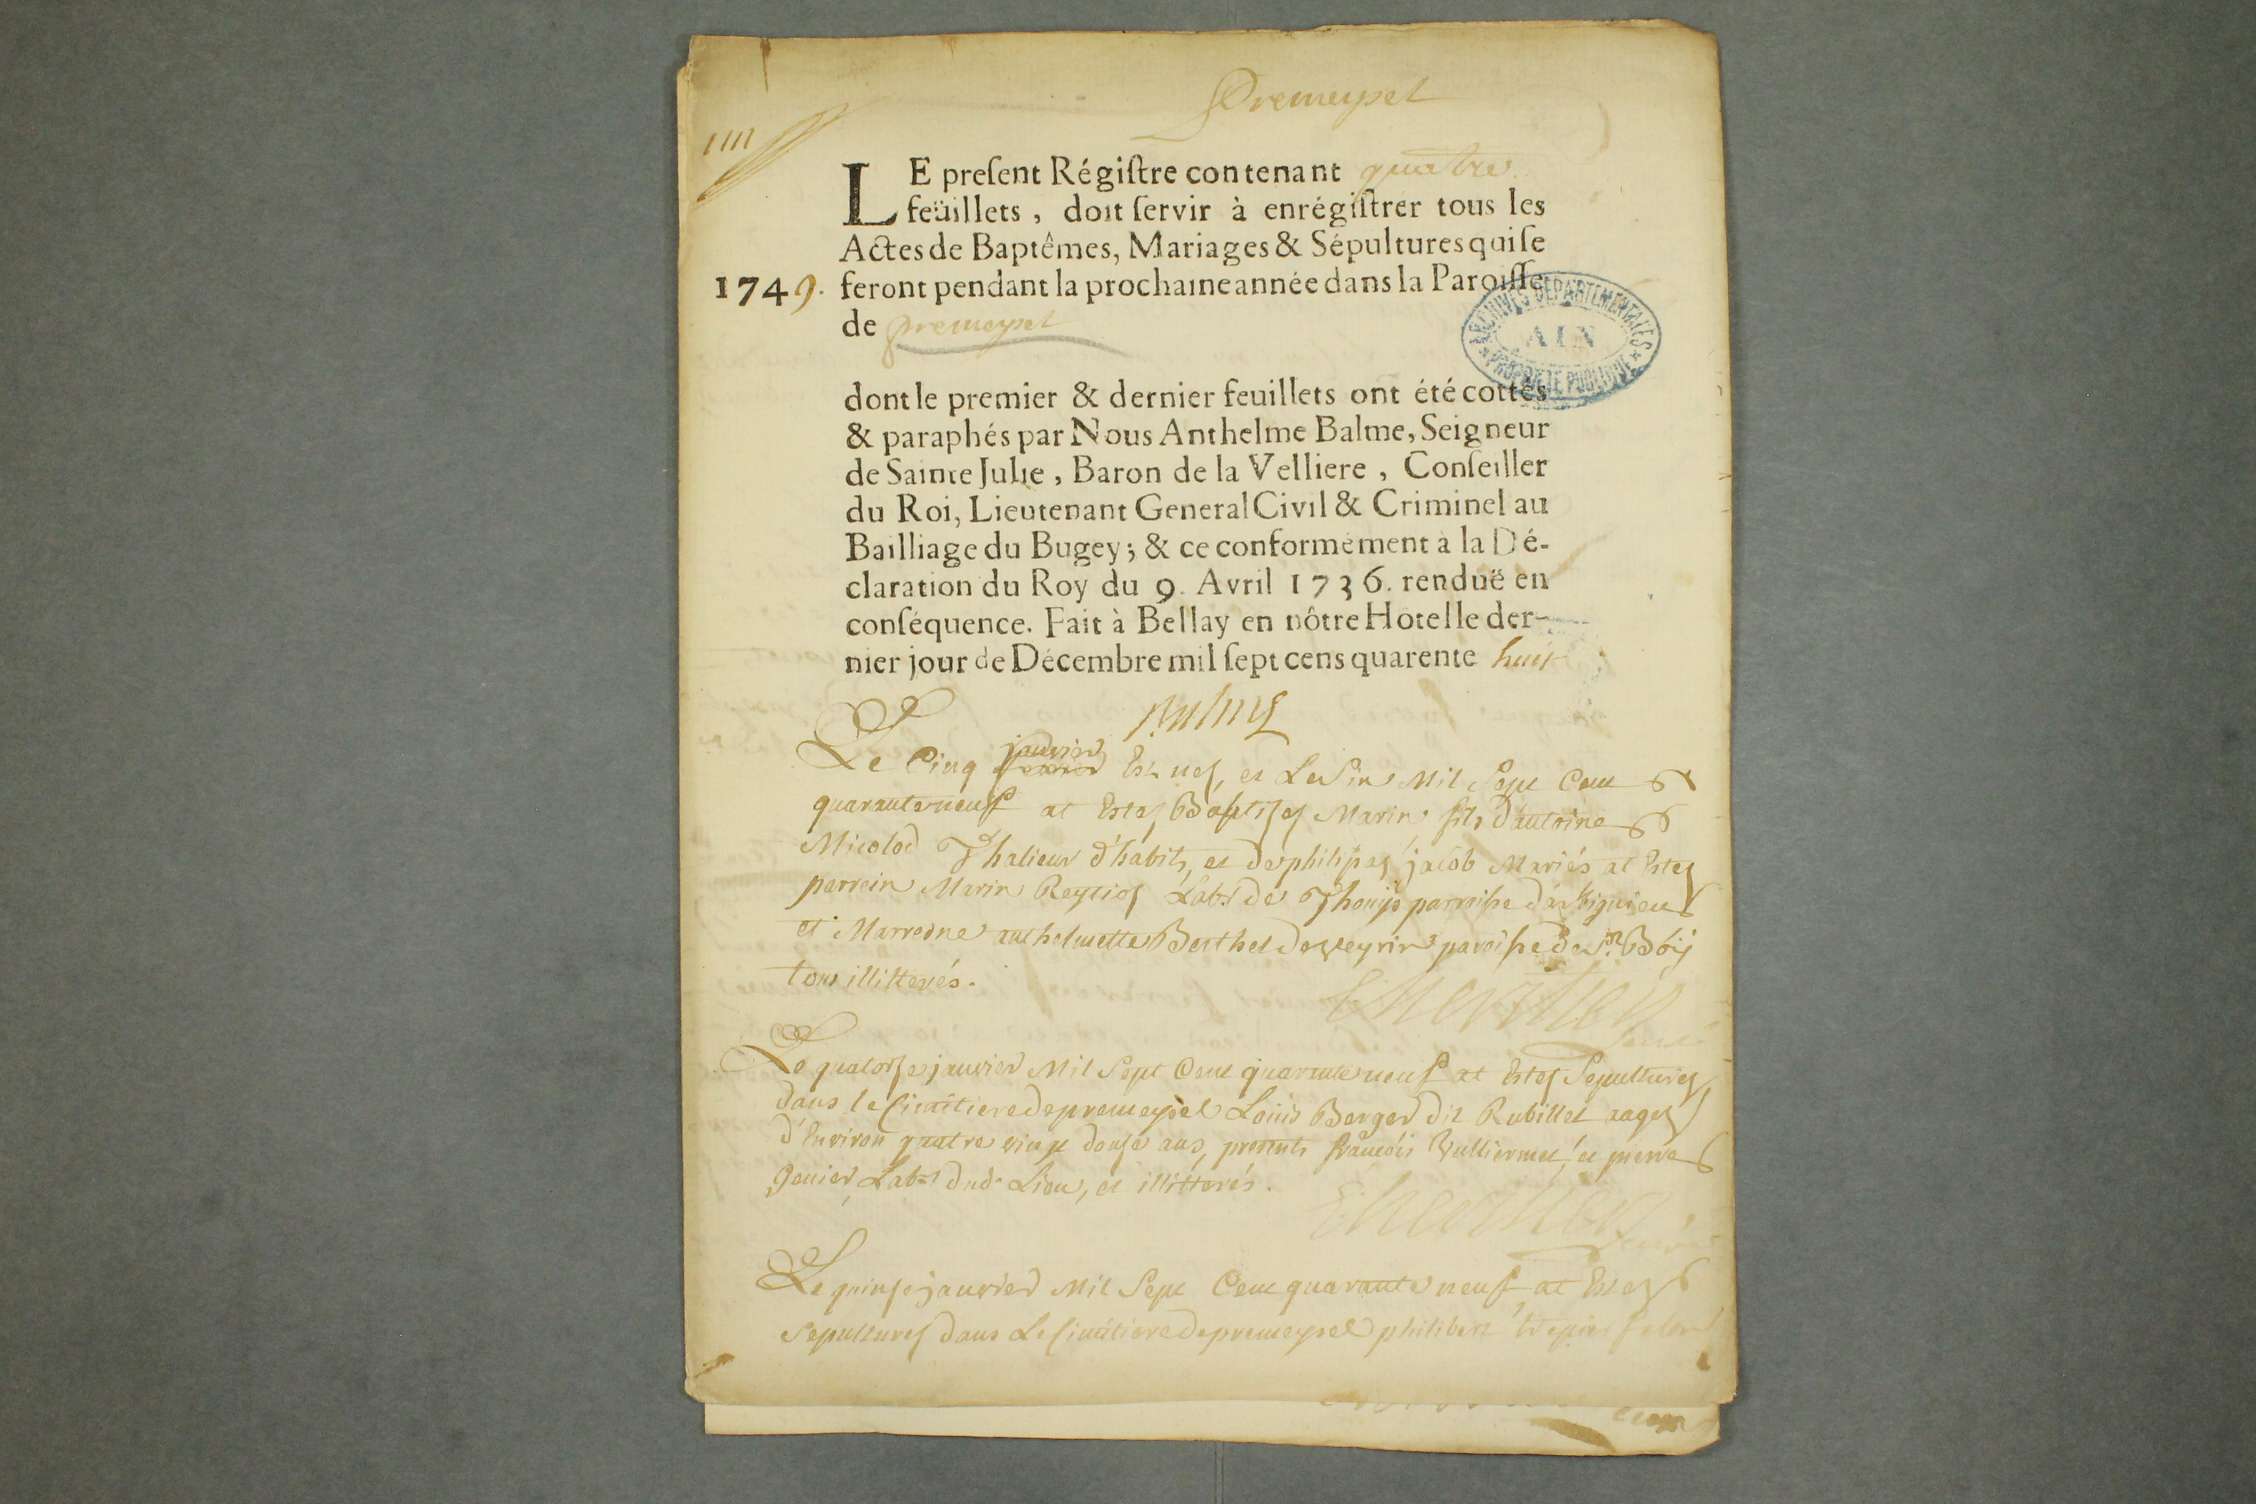 Premeysel
1111
LE preſent Régiſtre contenant quatre
feüillets, doit ſervir à enrégiſtrer tous les
Actes de Baptêmes, Mariages & Sépultures qui ſe
1749. feront pendant la prochaine année dans la Paroiſſe
de premeysel
ARCHIVES DEPARTEMENTALES
AIN
PROPRIETE PUBLIQUE
dont le premier & dernier feuillets ont été cottés
& paraphés par Nous Anthelme Balme, Seigneur
de Sainte Julie, Baron de la Velliere, Conſeiller
du Roi, Lieutenant General Civil & Criminel au
Bailliage du Bugey; & ce conformément à la Dé-
claration du Roy du 9. Avril 1736. renduë en
conſéquence. Fait à Bellay en nôtre Hotel le der-
nier jour de Décembre mil ſept cens quarente huit
Balme
Le Cinq janvier Est nef, et Le Mil Sept Cent
quarante neuf at Estes Baptises Marin fils d'antoine
Micolod Thalieur d'habits, et de philipas jacob Mariés at Estes
parrein Marin Reytios Labr. de Thouys parroisse d'arbignieu
et Marredne anthelmette Berthet de veyrin paroisse de St. Boij
tous illitterés.
Le quatorse janvier Mil Sept Cent quarante neuf at Estes Sepultures
dans le Cimitiere de premeysel Loüis Berger dit Rubillet aages
d'Environ quatre vingt douse ans, presents françois Vulliermet, et pierre
Genier, Labrs. dud. Lieu, et illitterés.
Le quinse janvier Mil Sept Cent quarante neuf at Estes
Sepultures dans Le Cimitiere de premeysel philibert